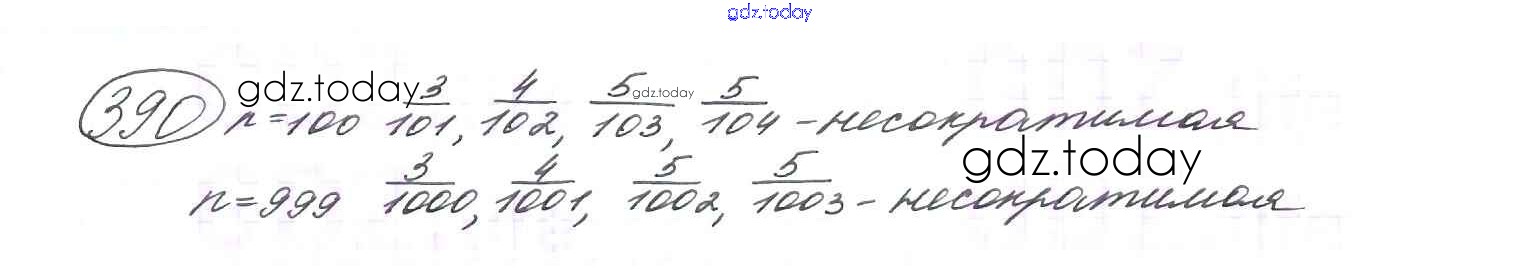 gdz.today
390 gdz.today n=100 3/101, 4/102, 5/103, 5/104 - несократимая
gdz.today
n=999 3/1000, 4/1001, 5/1002, 5/1003 - несократимая
gdz.today